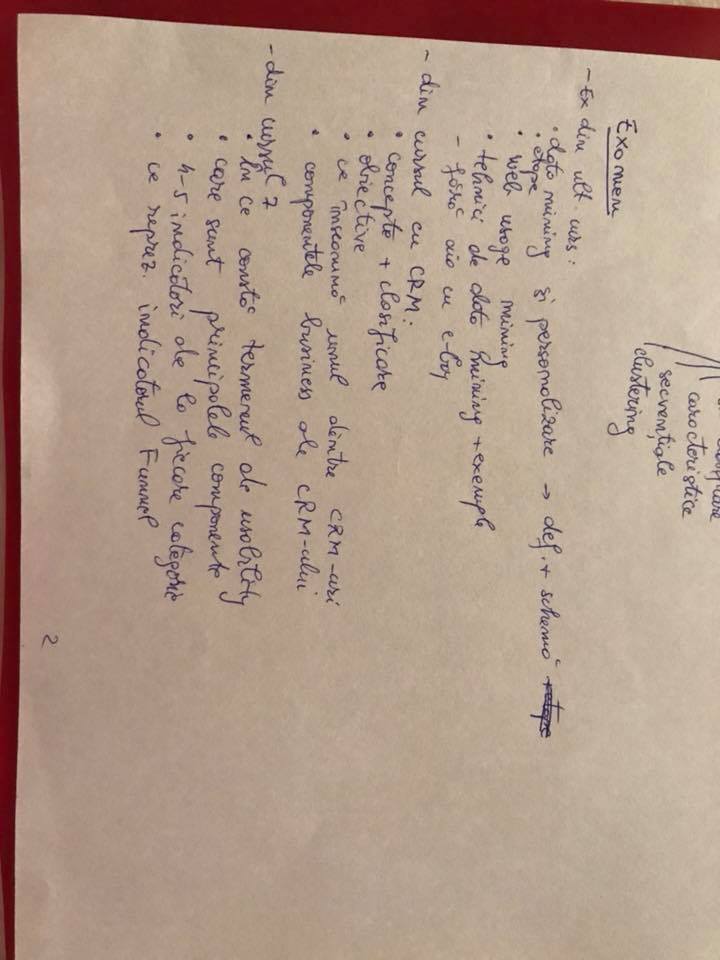 caracteristice
secvențiale
clustering
Examen
- Ex din ult. curs:
• data mining și personalizare → def. + schemă
• etape
• web usage mining
• tehnici de data mining + exemple
- fără aia cu e-bay
- din cursul cu CRM:
• concepte + clasificare
• obiective
• ce înseamnă unul dintre CRM-uri
• componentele business ale CRM-ului
- din cursul 7
• în ce constă termenul de usability
• care sunt principalele componente
• 4-5 indicatori de la fiecare categorie
• ce reprez. indicatorul Funnel
2